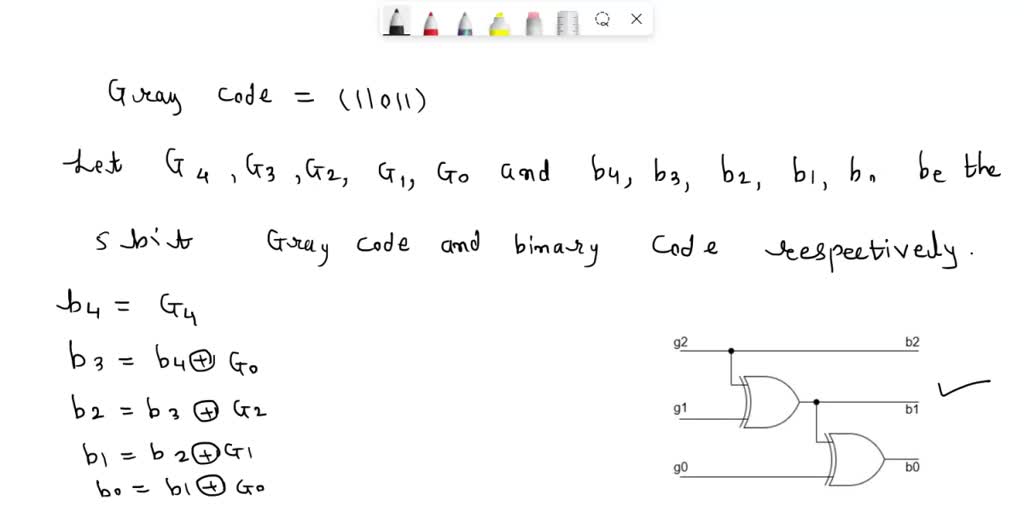 Gray code = (11011)
Let G4, G3, G2, G1, G0 and b4, b3, b2, b1, b0 be the
5 bit Gray code and binary code respectively.
b4 = G4
b3 = b4 ⊕ G0
b2 = b3 ⊕ G2
b1 = b2 ⊕ G1
b0 = b1 ⊕ G0
g2 b2
g1 b1
g0 b0